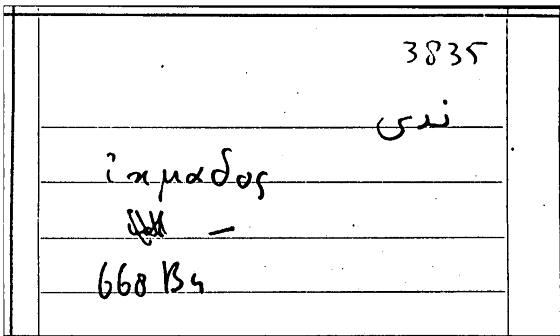 3835
ندى
ἰκμαδος
—
660 B4